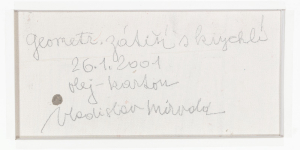 geometr. zátiší s krychlí
26.1.2001
olej-karton
Vladislav Mirvald